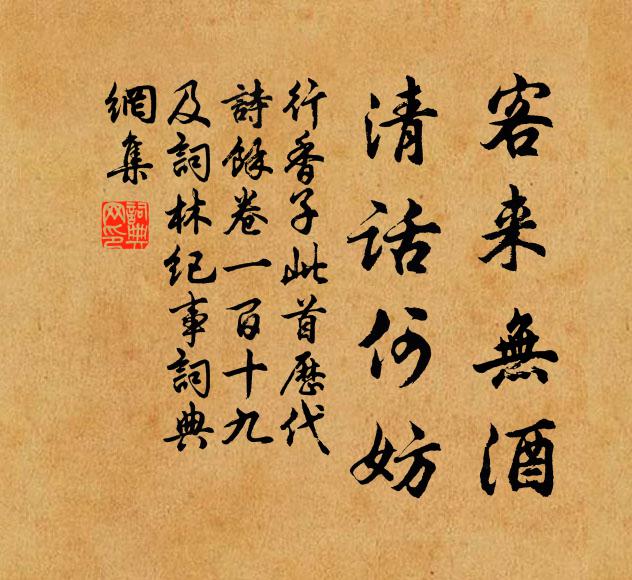 客来無酒
清話何妨
行香子此首歷代
詩餘卷一百十九
及詞林纪事詞典
網集
詞典網印